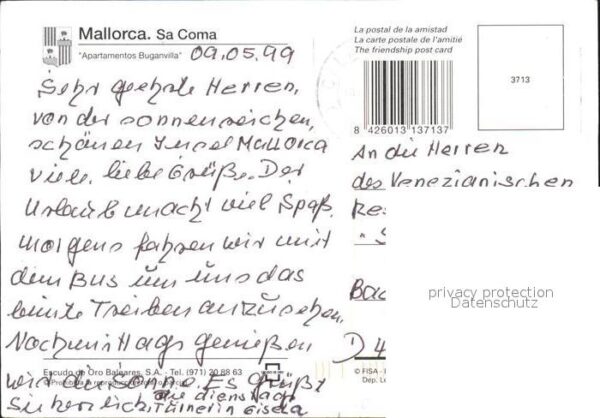 Mallorca. Sa Coma
"Apartamentos Buganvilla"
09.05.99
Sehr geehrte Herren,
von der sonnenreichen,
schönen Insel Mallorca
viele liebe Grüße. Der
Urlaub macht viel Spaß.
Morgens fahren wir mit
dem Bus um uns das
bunte Treiben anzusehen.
Nachmittags genießen
wir die Sonne. Es grüßt
Sie herzlich, die dienstags
Turnerin Gisela
Escudo de Oro Baleares, S.A. - Tel. (971) 20 88 63
La postal de la amistad
La carte postale de l'amitié
The friendship post card
8 426013 137137
3713
An die Herren
des Venezianischen
Res
"S
Bad
D 4
© FISA -
Dep. Le
privacy protection
Datenschutz